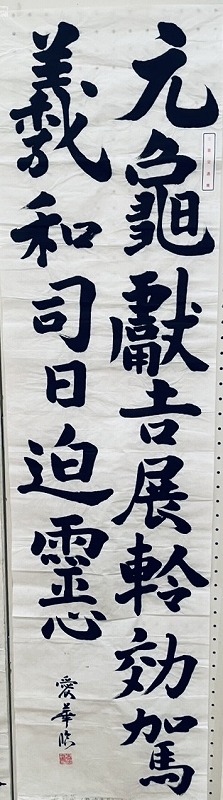 元龜獻吉展軨効駕
羲和司日迫靈
愛華臨